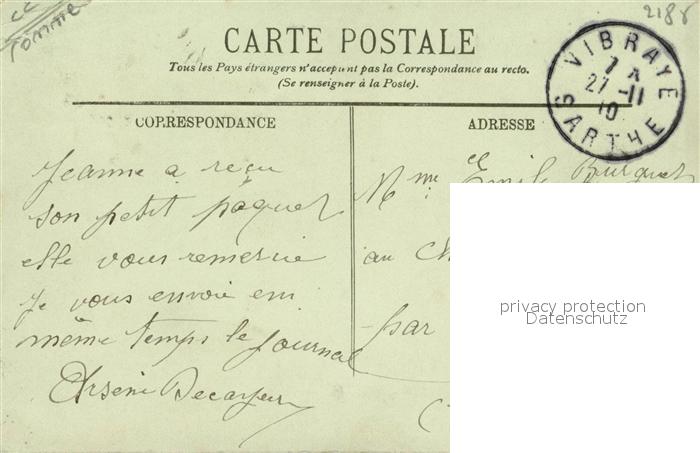 2188
CC
Pomme
CARTE POSTALE
Tous les Pays étrangers n'acceptent pas la Correspondance au recto.
(Se renseigner à la Poste).
VIBRAYE
7
27-11
10
SARTHE
CORRESPONDANCE
Jeanne a reçu
son petit paquet
elle vous remercie
je vous envoie en
même temps le journal
Arsène
ADRESSE
Mme Emile
au
par
privacy protection
Datenschutz